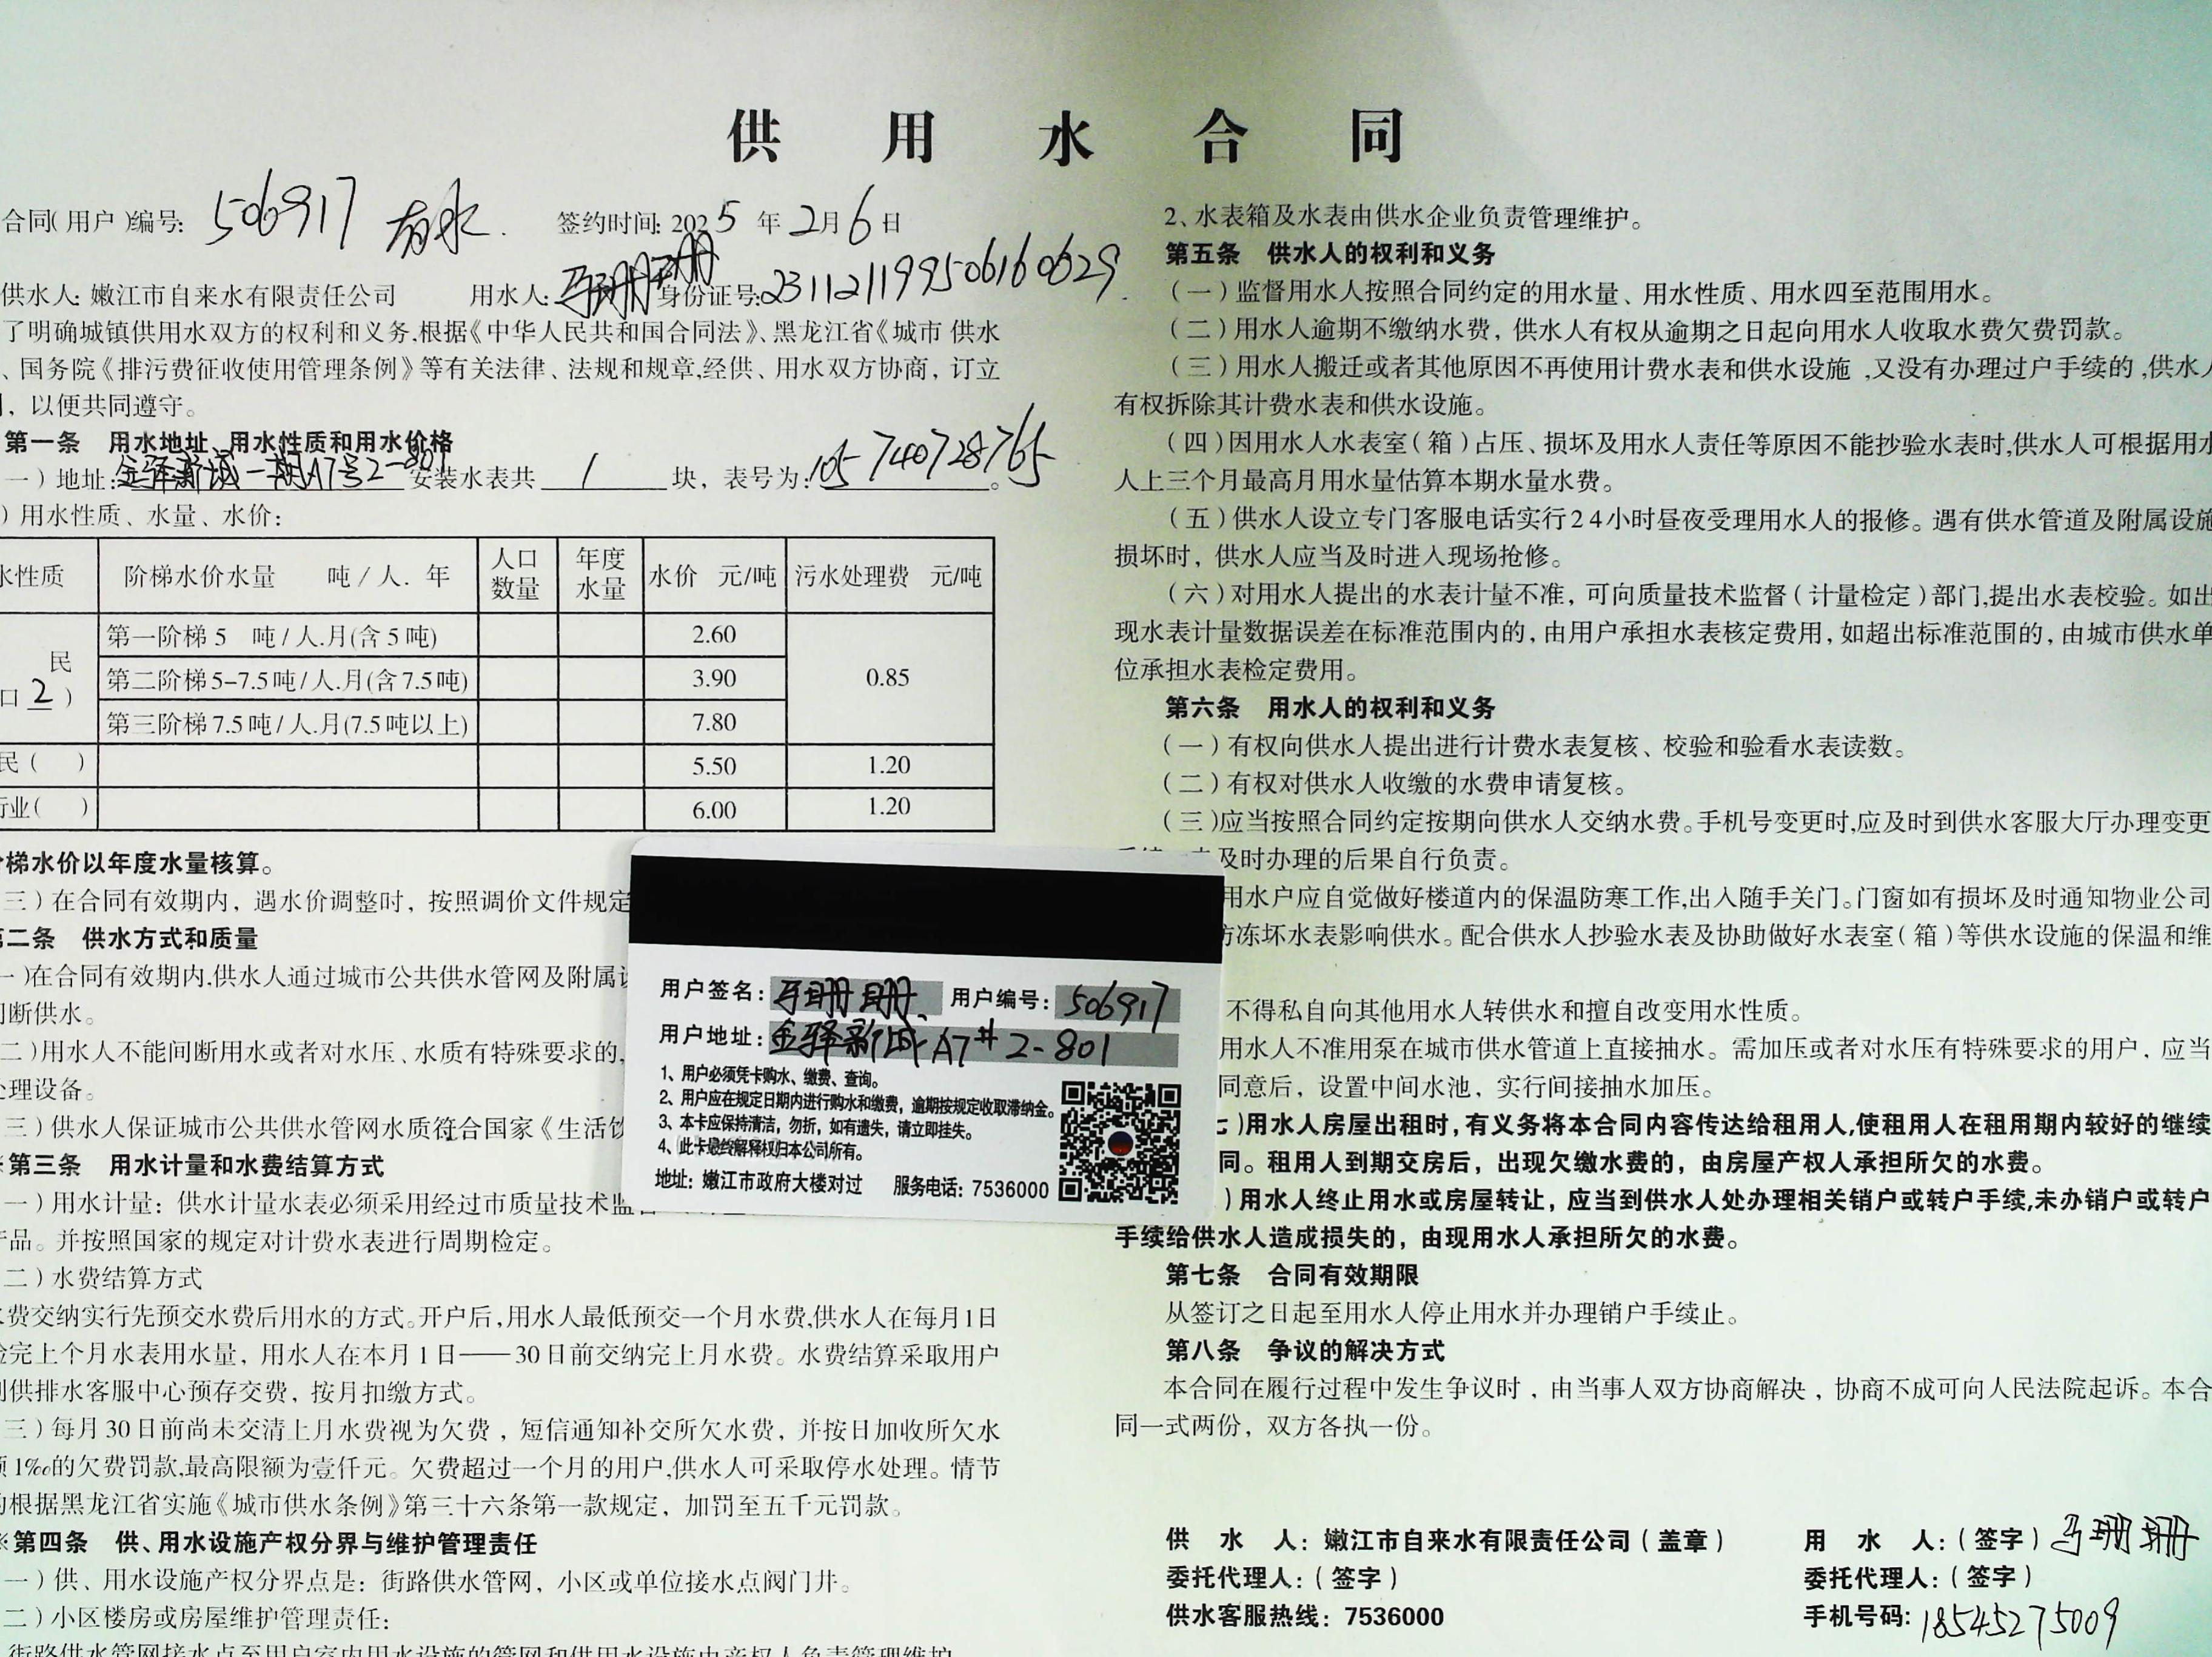 供用水合同
合同(用户)编号: 506917 有水.
签约时间: 2025年2月6日
供水人: 嫩江市自来水有限责任公司 用水人: 马珊珊 身份证号: 231121199506160629.
了明确城镇供用水双方的权利和义务,根据《中华人民共和国合同法》、黑龙江省《城市供水
、国务院《排污费征收使用管理条例》等有关法律、法规和规章,经供、用水双方协商，订立
，以便共同遵守。
第一条 用水地址、用水性质和用水价格
一）地址: 金驿新城一期A7号2-801 安装水表共 1 块，表号为: 105740728765。
）用水性质、水量、水价:
水性质 阶梯水价水量 吨/人.年 人口数量 年度水量 水价 元/吨 污水处理费 元/吨
民
口 2 ）
第一阶梯 5 吨/人.月(含5吨) 2.60
第二阶梯5-7.5吨/人.月(含7.5吨) 3.90 0.85
第三阶梯7.5吨/人.月(7.5吨以上) 7.80
民（ ） 5.50 1.20
行业（ ） 6.00 1.20
梯水价以年度水量核算。
三）在合同有效期内，遇水价调整时，按照调价文件规定
第二条 供水方式和质量
一）在合同有效期内,供水人通过城市公共供水管网及附属设
间断供水。
二）用水人不能间断用水或者对水压、水质有特殊要求的,
处理设备。
三）供水人保证城市公共供水管网水质符合国家《生活饮
※第三条 用水计量和水费结算方式
一）用水计量：供水计量水表必须采用经过市质量技术监
产品。并按照国家的规定对计费水表进行周期检定。
二）水费结算方式
水费交纳实行先预交水费后用水的方式。开户后,用水人最低预交一个月水费,供水人在每月1日
验完上个月水表用水量，用水人在本月1日——30日前交纳完上月水费。水费结算采取用户
到供排水客服中心预存交费，按月扣缴方式。
三）每月30日前尚未交清上月水费视为欠费，短信通知补交所欠水费，并按日加收所欠水
额1‰的欠费罚款,最高限额为壹仟元。欠费超过一个月的用户,供水人可采取停水处理。情节
的根据黑龙江省实施《城市供水条例》第三十六条第一款规定，加罚至五千元罚款。
※第四条 供、用水设施产权分界与维护管理责任
一）供、用水设施产权分界点是：街路供水管网，小区或单位接水点阀门井。
二）小区楼房或房屋维护管理责任:
街路供水管网接水点至用户室内用水设施的管网和供用水设施由产权人负责管理维护
2、水表箱及水表由供水企业负责管理维护。
第五条 供水人的权利和义务
（一）监督用水人按照合同约定的用水量、用水性质、用水四至范围用水。
（二）用水人逾期不缴纳水费，供水人有权从逾期之日起向用水人收取水费欠费罚款。
（三）用水人搬迁或者其他原因不再使用计费水表和供水设施,又没有办理过户手续的,供水人
有权拆除其计费水表和供水设施。
（四）因用水人水表室(箱)占压、损坏及用水人责任等原因不能抄验水表时,供水人可根据用水
人上三个月最高月用水量估算本期水量水费。
（五）供水人设立专门客服电话实行24小时昼夜受理用水人的报修。遇有供水管道及附属设施
损坏时，供水人应当及时进入现场抢修。
（六）对用水人提出的水表计量不准，可向质量技术监督(计量检定)部门,提出水表校验。如出
现水表计量数据误差在标准范围内的，由用户承担水表核定费用，如超出标准范围的，由城市供水单
位承担水表检定费用。
第六条 用水人的权利和义务
（一）有权向供水人提出进行计费水表复核、校验和验看水表读数。
（二）有权对供水人收缴的水费申请复核。
（三)应当按照合同约定按期向供水人交纳水费。手机号变更时,应及时到供水客服大厅办理变更
及时办理的后果自行负责。
用水户应自觉做好楼道内的保温防寒工作,出入随手关门。门窗如有损坏及时通知物业公司
防冻坏水表影响供水。配合供水人抄验水表及协助做好水表室(箱)等供水设施的保温和维
不得私自向其他用水人转供水和擅自改变用水性质。
用水人不准用泵在城市供水管道上直接抽水。需加压或者对水压有特殊要求的用户，应当
同意后，设置中间水池，实行间接抽水加压。
七)用水人房屋出租时,有义务将本合同内容传达给租用人,使租用人在租用期内较好的继续
同。租用人到期交房后，出现欠缴水费的，由房屋产权人承担所欠的水费。
)用水人终止用水或房屋转让，应当到供水人处办理相关销户或转户手续,未办销户或转户
手续给供水人造成损失的，由现用水人承担所欠的水费。
第七条 合同有效期限
从签订之日起至用水人停止用水并办理销户手续止。
第八条 争议的解决方式
本合同在履行过程中发生争议时，由当事人双方协商解决，协商不成可向人民法院起诉。本合
同一式两份，双方各执一份。
供水人: 嫩江市自来水有限责任公司(盖章) 用水人:(签字) 马珊珊
委托代理人:(签字) 委托代理人:(签字)
供水客服热线: 7536000 手机号码: 18545275009
用户签名: 马珊珊. 用户编号: 506917
用户地址: 金驿新城A7#2-801
1、用户必须凭卡购水、缴费、查询。
2、用户应在规定日期内进行购水和缴费，逾期按规定收取滞纳金。
3、本卡应保持清洁，勿折，如有遗失，请立即挂失。
4、此卡最终解释权归本公司所有。
地址: 嫩江市政府大楼对过 服务电话: 7536000